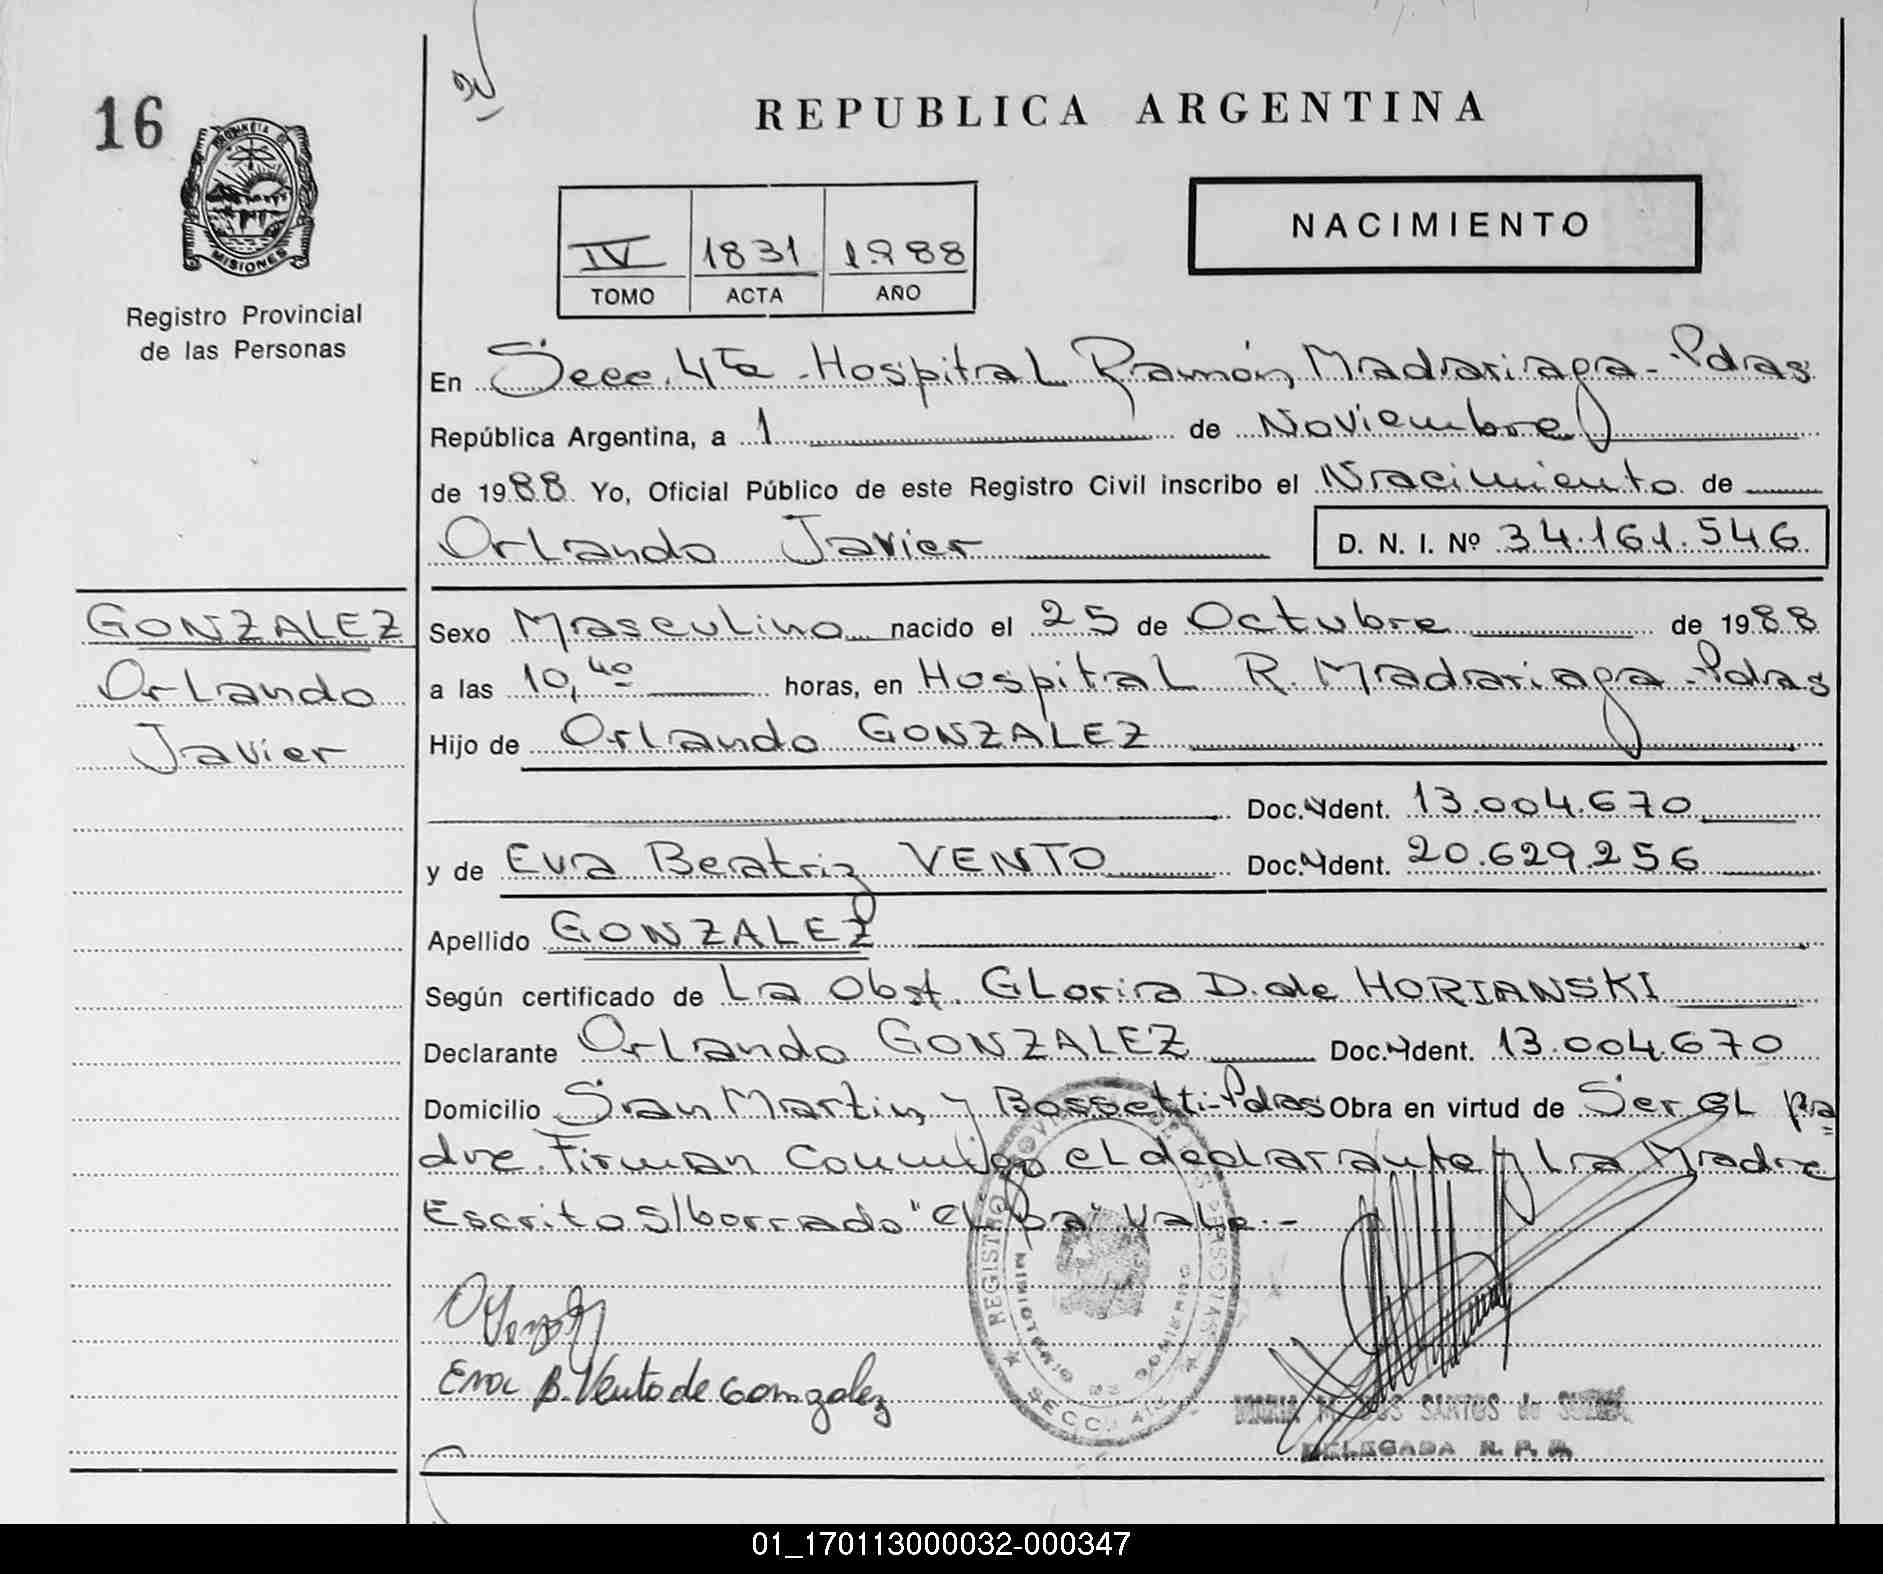 16
PROVINCIA DE
MISIONES
Registro Provincial
de las Personas
REPUBLICA ARGENTINA
NACIMIENTO
IV 1831 1988
TOMO ACTA AÑO
En Secc. 4ta - Hospital Ramón Madariaga - Pdas
República Argentina, a 1 de Noviembre
de 1988 Yo, Oficial Público de este Registro Civil inscribo el Nacimiento de
Orlando Javier D. N. I. Nº 34.161.546
GONZALEZ
Orlando
Javier
Sexo Masculino nacido el 25 de Octubre de 1988
a las 10,40 horas, en Hospital R. Madariaga - Pdas
Hijo de Orlando GONZALEZ
Doc. Ident. 13.004.670
y de Eva Beatriz VENTO Doc. Ident. 20.629.256
Apellido GONZALEZ
Según certificado de La Obst. Gloria D. de HORIANSKI
Declarante Orlando GONZALEZ Doc. Ident. 13.004.670
Domicilio San Martin y Bossetti - Pdas Obra en virtud de Ser el pa
dre. Firman Conmigo el declarante y La Madre
Escrito s/borrado "el Ba" Vale.-
Eva B. Vento de Gonzalez
REGISTRO
MINISTERIO DE GOBIERNO
SECC. 4ta
SANTOS de
DELEGADA R. P. P.
01_170113000032-000347